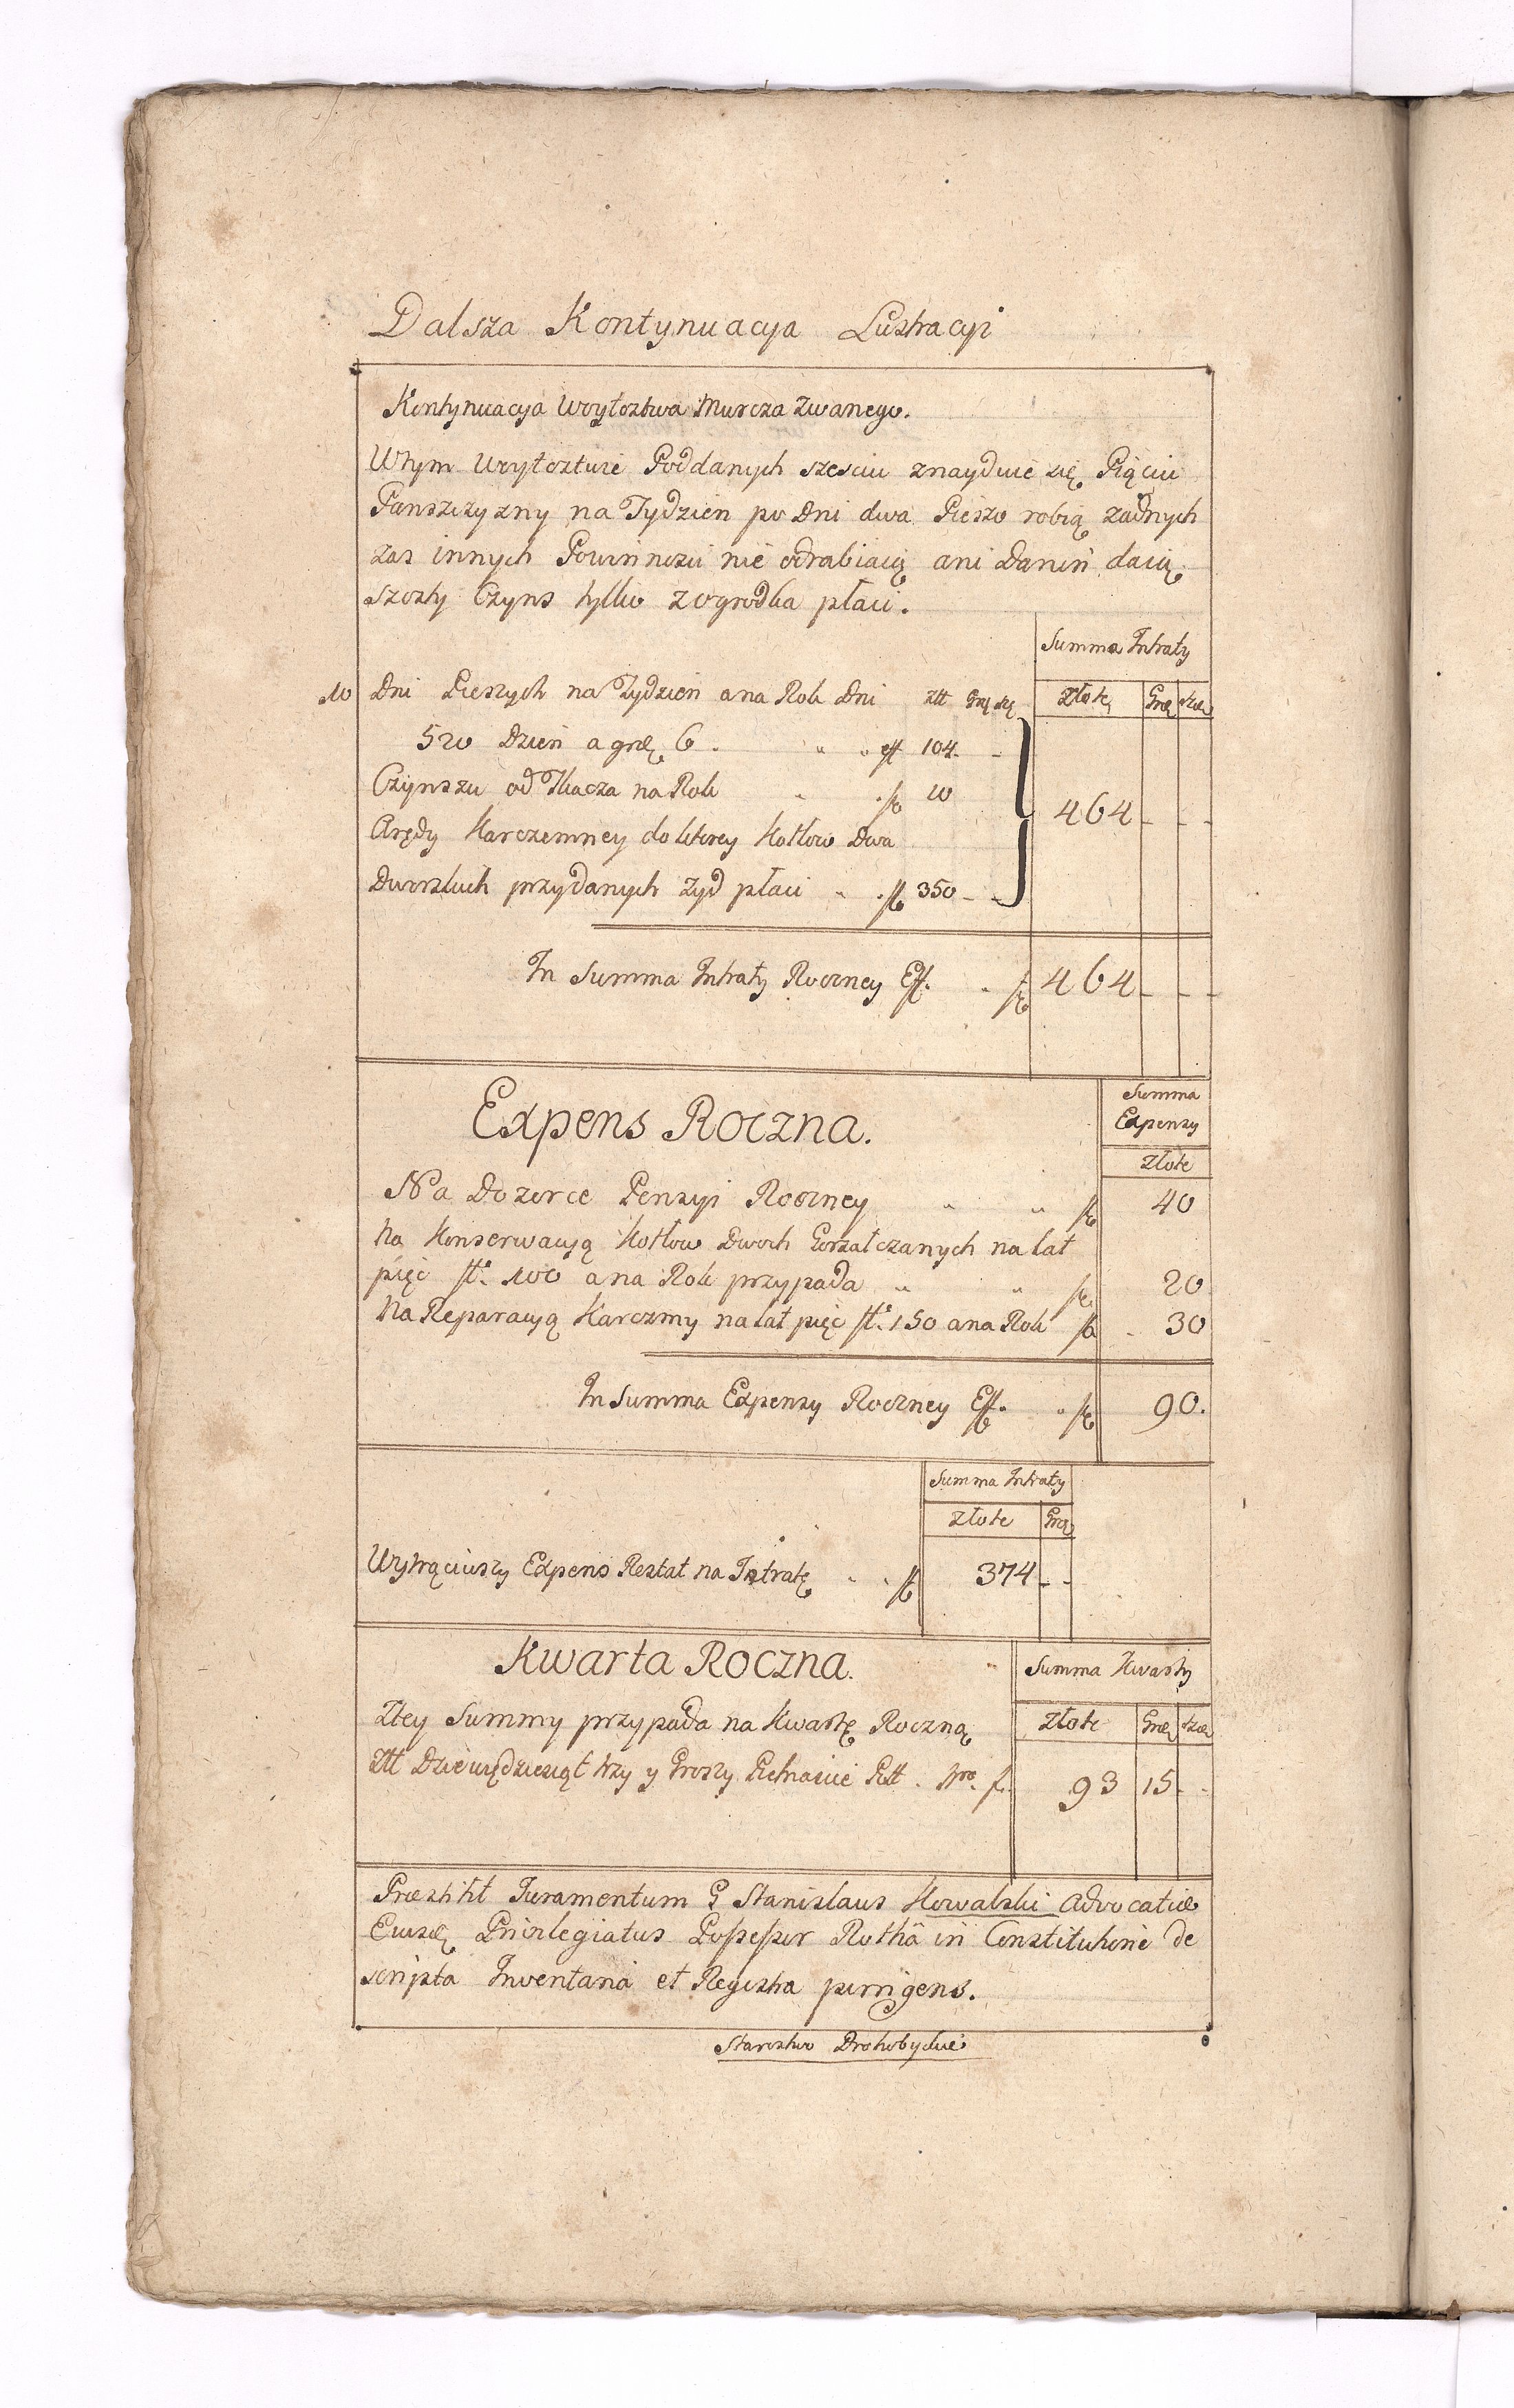 Dalsza Kontynuacya Lustracyi
Kontynuacya Woytostwa Murcza Zwanego.
Wtym Woytostwie Poddanych szesciu znayduie się Pięciu
Panszczyzny na Tydzien po Dni dwa Pieszo robią żadnych
zas innych Powinnosci nie odrabiaią ani Danin daią
szosty Czynsz tylko zogrodka płaci.
Summa Intraty
10 Dni Pieszych na Tydzien a na Rok Dni Złt Grę szę Złote Grę szę
520 Dzien a grę 6. " " eff 104 - -
Czynszu od Tkacza na Rok " " 10
464 - - -
Arędy Karczemney do ktorey Kotłow Dwa
Dworskich przydanych Zyd płaci " " 350 - -
In Summa Intraty Roczney Eff. " 464 - - -
Expens Roczna.
Summa
Expensy
Złote
Na Dozorce Pensyi Roczney " " 40
Na Konserwacyą Kotłow Dwoch Gorzałczanych na lat
pięć fl. 100 a na Rok przypada " " 20
Na Reparacyą Karczmy na lat pięć fl. 150 a na Rok 30
In Summa Expensy Roczney Eff. " 90.
Summa Intraty
Złote Grę
Wytrąciwszy Expens Restat na Intratę " " 374 - -
Kwarta Roczna.
Summa Kwarty
Ztey Summy przypada na Kwartę Roczną Złote Grę szę
Złt Dziewiędziesiąt trzy y Groszy Pietnascie 93 15 - -
Præstitit Iuramentum G Stanislaus Kowalski Advocatiæ
Eiusdę Privilegiatus Possessor Rotha in Constitutione de
scripta Inventaria et Regestra porrigens.
Starostwo Drohobyckie